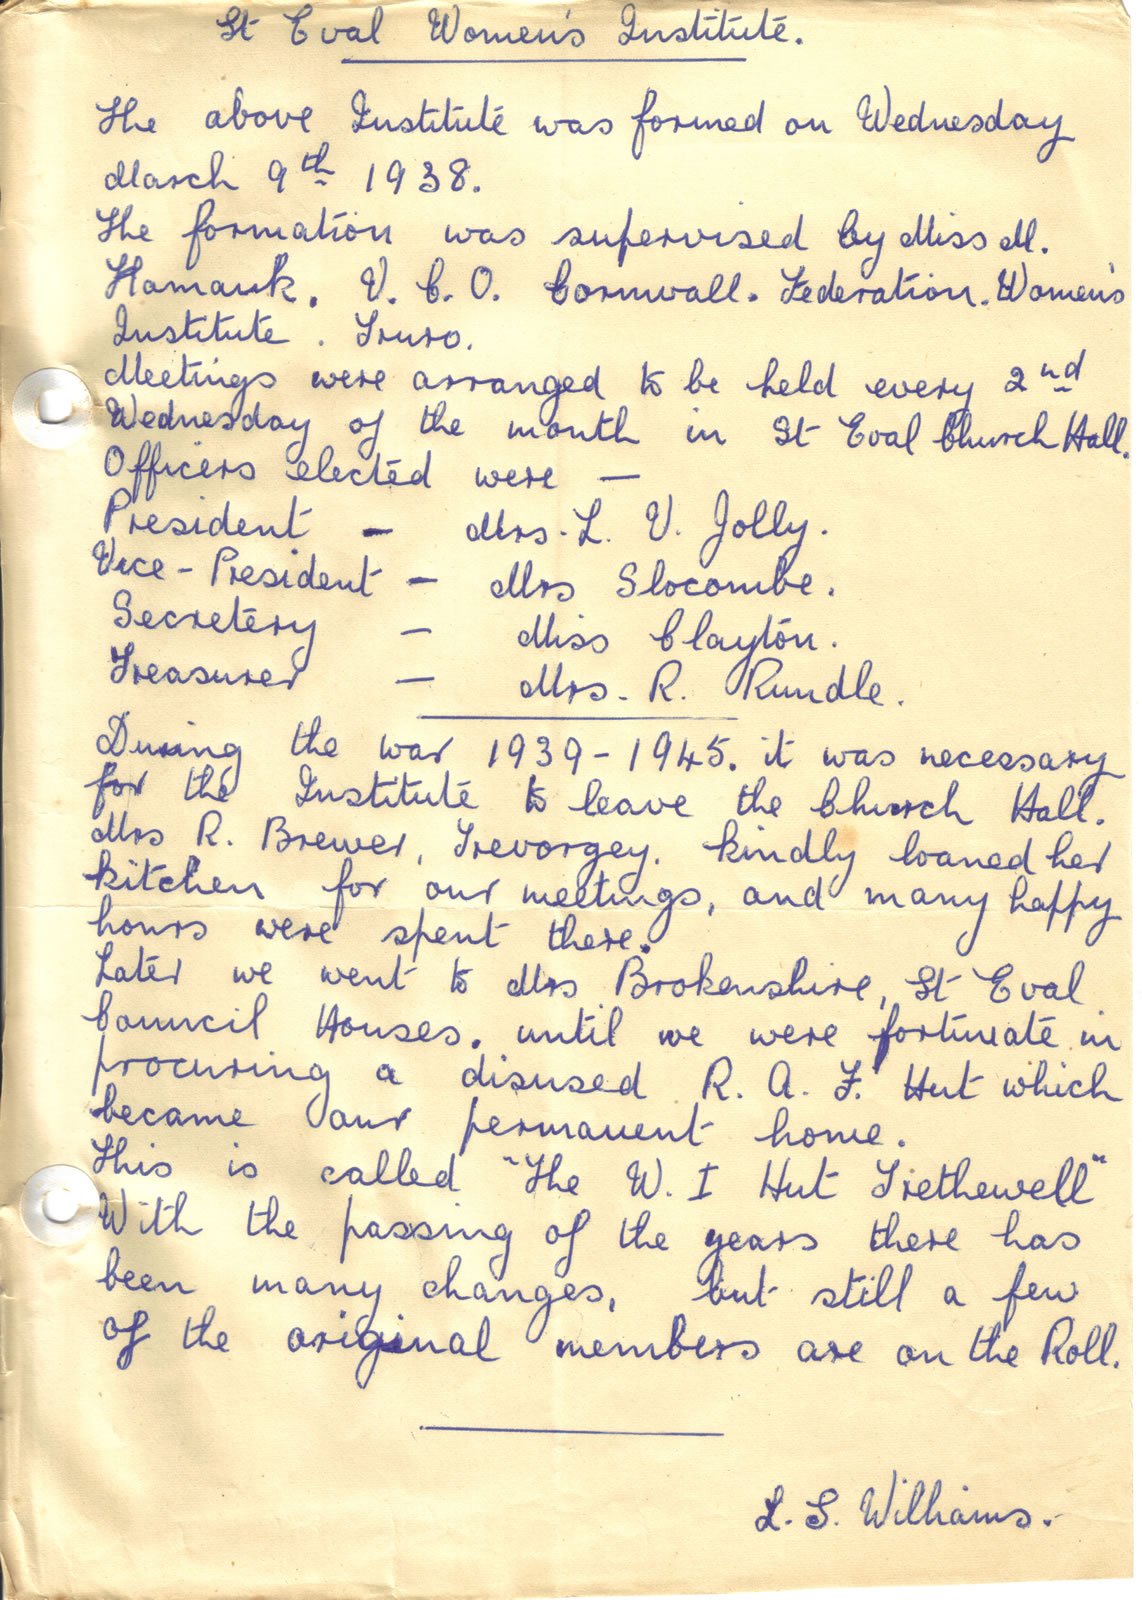 St Eval Women's Institute.
The above Institute was formed on Wednesday
March 9th 1938.
The formation was supervised by Miss M.
Hamank. V. C. O. Cornwall. Federation. Women's
Institute. Truro.
Meetings were arranged to be held every 2nd
Wednesday of the month in St Eval Church Hall.
Officers elected were —
President — Mrs. L. V. Jolly.
Vice-President — Mrs Slocombe.
Secretery — Miss Clayton.
Treasurer — Mrs. R. Rundle.
During the war 1939-1945. it was necessary
for the Institute to leave the Church Hall.
Mrs R. Brewer, Trevorgey. kindly loaned her
kitchen for our meetings, and many happy
hours were spent there.
Later we went to Mrs Brokenshire, St Eval
Council Houses. until we were fortunate in
procuring a disused R. A. F. Hut which
became our permanent home.
This is called "The W. I Hut Trethewell"
With the passing of the years there has
been many changes, but still a few
of the original members are on the Roll.
L. S. Williams.